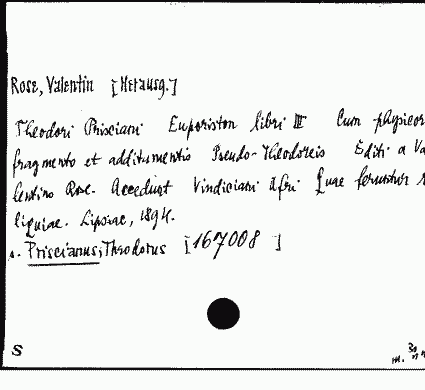 Rose, Valentin [Herausg.]
Theodori Prisciani Euporiston libri III Cum physicor
fragmento et additamentis Pseudo-Theodoreis Editi a Va
lentino Rose. Accedunt Vindiciani Afri quae feruntur r
liquiae. Lipsiae, 1894.
s. Priscianus, Theodorus [167008]
S
m.